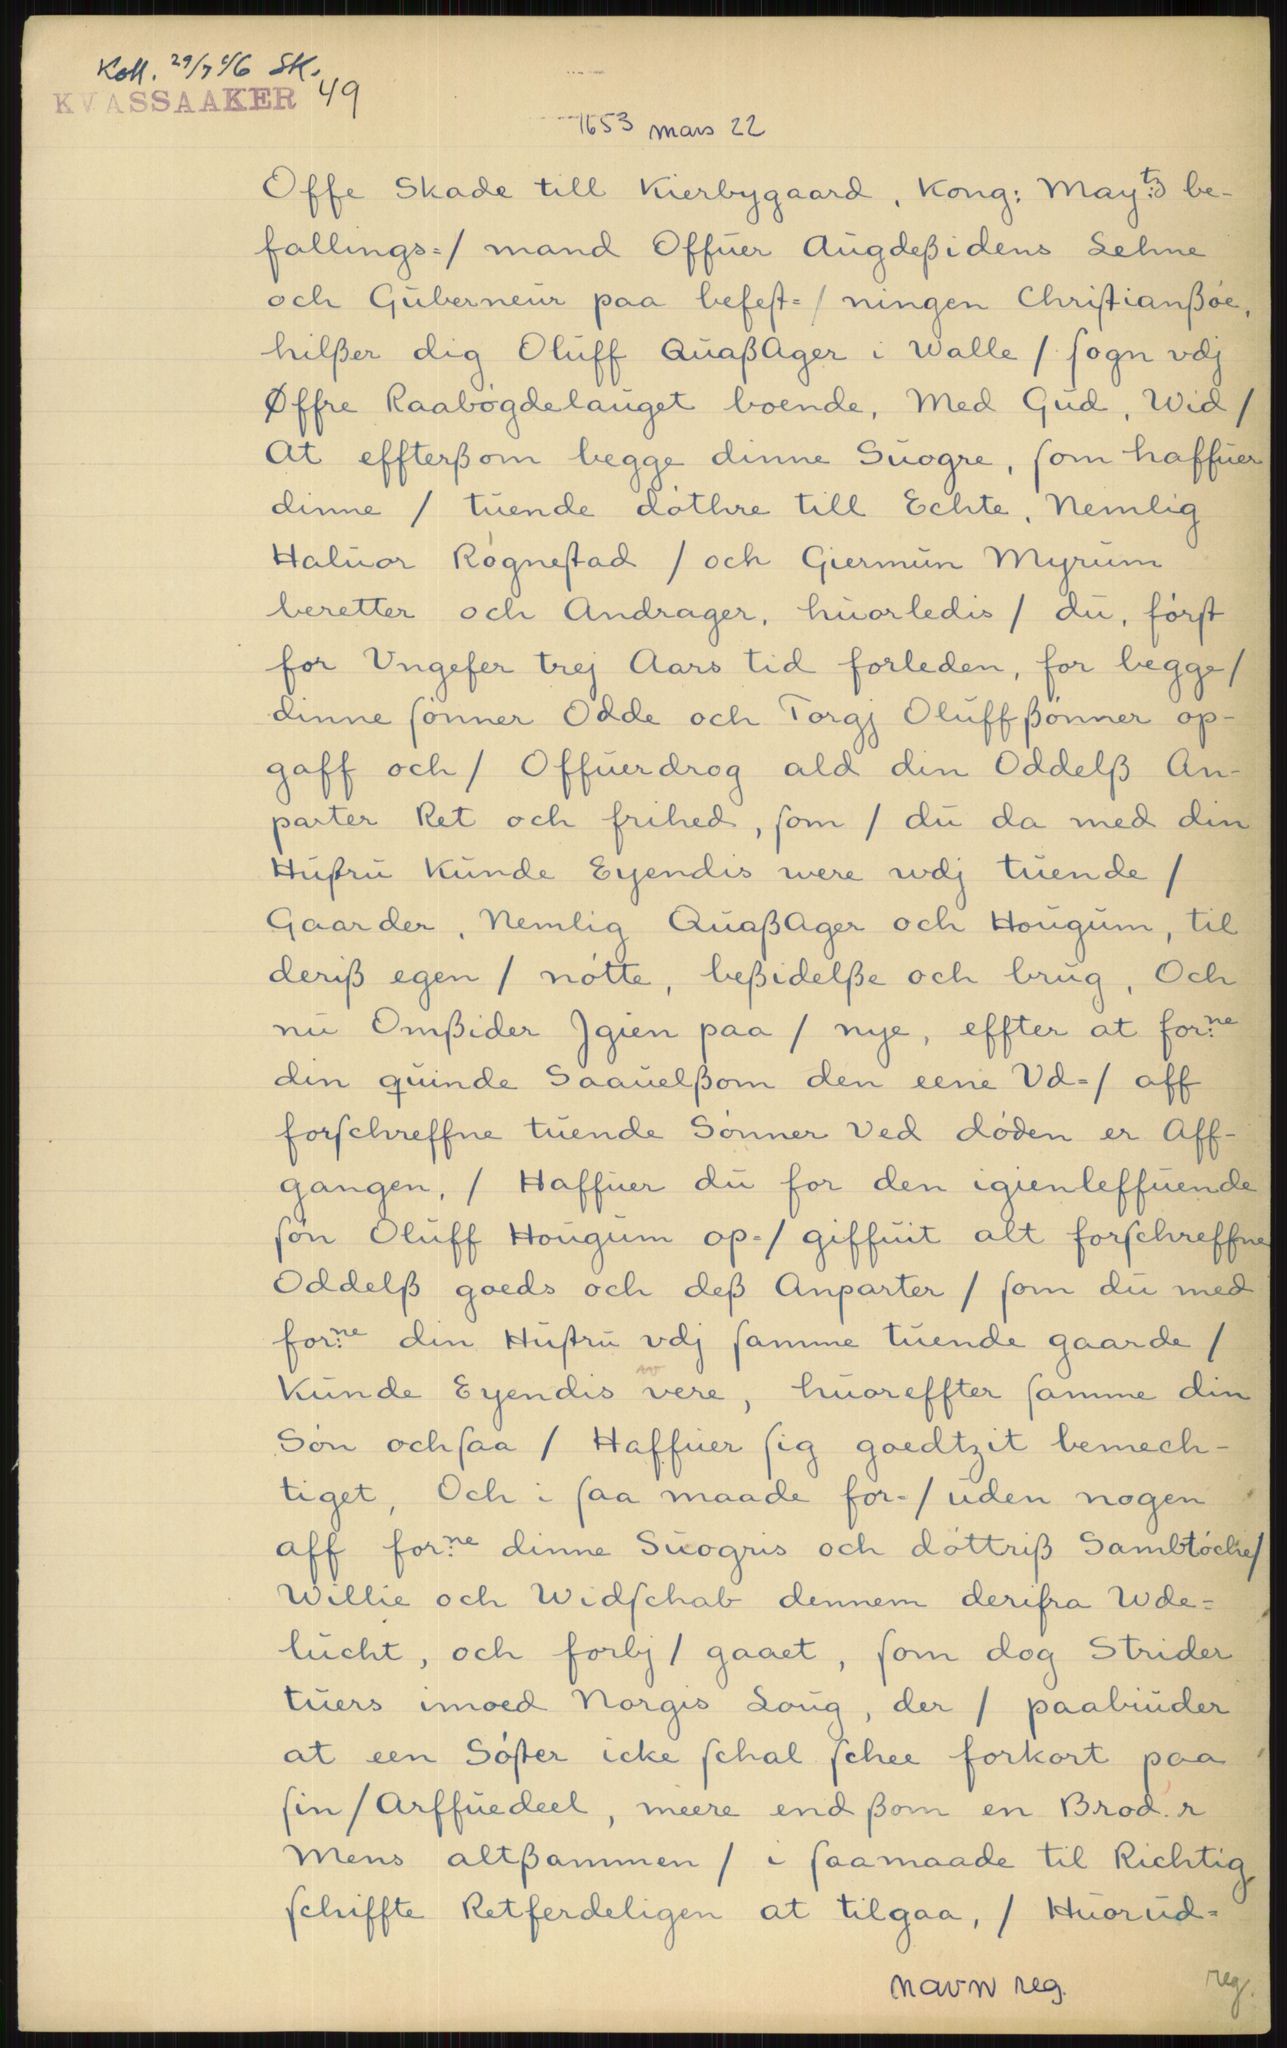 Koll. 29/7 46 SK.
KVASSAAKER 49
1653 mars 22
Offe Skade till Kierbygaard, Kong: May:tz be-
fallings=/ mand Offuer Augdeßidens Lehne
och Guberneur paa befest=/ ningen Christianßóe,
hilßer dig Oluff QuaßAger i Walle / sogn vdj
Øffre Raabógdelauget boende, Med Gud, Wid /
At effterßom begge dinne Suogre, som haffuer
dinne / tuende dóthre till Echte, Nemlig
Haluor Rógnestad / och Giermun Myrum
beretter och Andrager, huorledis / du, fórst
for Vngefer trej Aars tid forleden, for begge /
dinne sónner Odde och Torgj Oluffßónner op-
gaff och / Offuerdrog ald din Oddelß An-
parter Ret och frihed, som / du da med din
Hustru Kunde Eyendis were wdj tuende /
Gaarder, Nemlig QuaßAger och Hougum, til
deriß egen / nótte, beßidelße och brug, Och
nu Omßider Jgien paa / nye, effter at for:ne
din quinde Saauelßom den eene Vd=/ aff
forschreffne tuende Sónner Ved dóden er Aff-
gangen, / Haffuer du for den igienleffuende
són Oluff Hougum op=/ giffuit alt forschreffne
Oddelß goeds och deß Anparter / som du med
for:ne din Hustru vdj samme tuende gaarde /
Kunde Eyendis vere, huoreffter samme din
Són ochsaa / Haffuer sig goedtzit bemech-
tiget, Och i saa maade for=/ uden nogen
aff for:ne dinne Suogris och dóttriß Sambtóchie/
Willie och Widschab dennem derifra Wde=
lucht, och forbj / gaaet, som dog Strider
tuers imoed Norgis Loug, der / paabiuder
at een Sóster icke schal schee forkort paa
sin / Arffuedeel, meere endßom en Brod:r
Mens altßammen / i saamaade til Richtig
schiffte Retferdeligen at tilgaa, / Huorud=
navn reg.
reg.